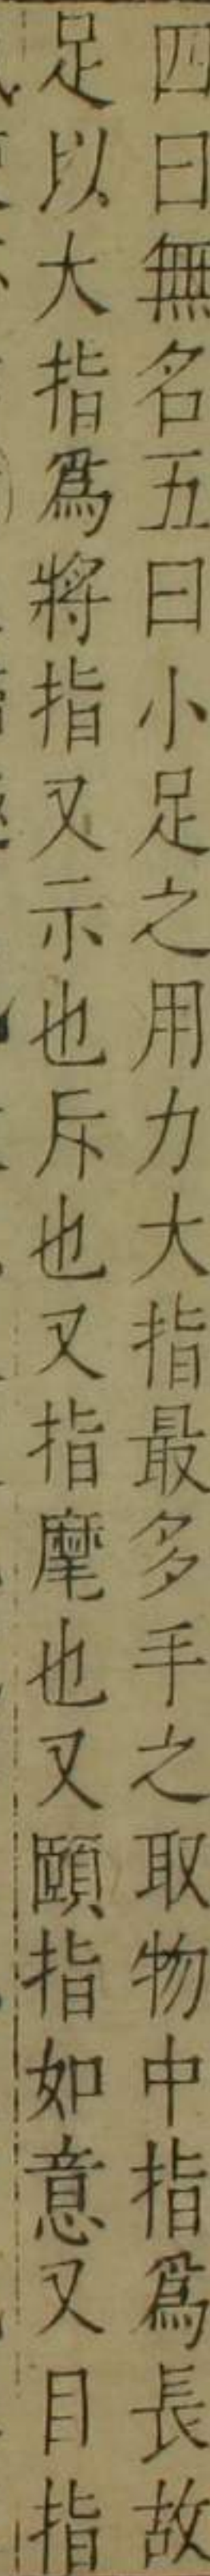 四曰無名五曰小足之用力大指最多手之取物中指爲長故
足以大指爲將指又示也斥也又指麾也又頤指如意又目指